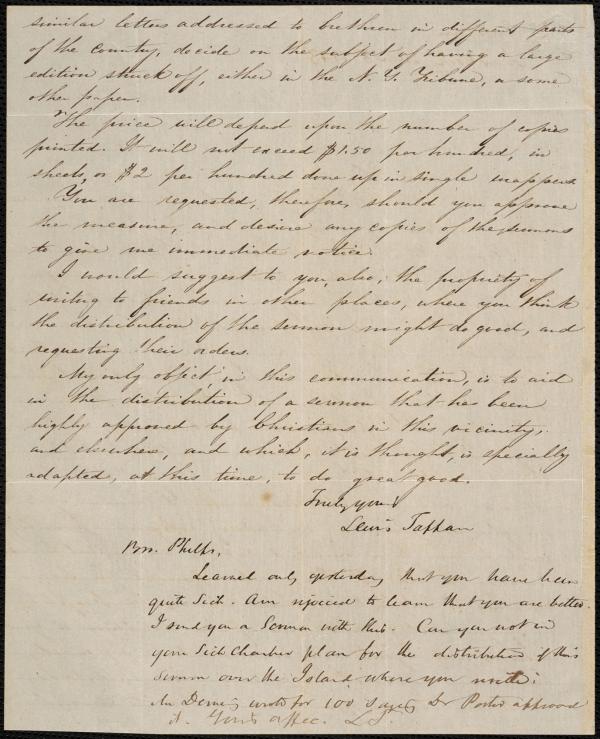 similar letters addressed to brethren in different parts
of the country, decide on the subject of having a large
edition struck off, either in the N. Y. Tribune, or some
other paper.
The price will depend upon the number of copies
printed. It will not exceed $1.50 per hundred, in
sheets, or $2 per hundred done up in single wrappers
You are requested, therefore, should you approve
the measure, and desire any copies of the sermons
to give me immediate notice.
I would suggest to you, also, the propriety of
writing to friends in other places, where you think
the distribution of the sermon might do good, and
requesting their orders.
My only object, in this communication, is to aid
in the distribution of a sermon that has been
highly approved by Christians in this vicinity,
and elsewhere, and which, it is thought, is specially
adapted, at this time, to do great good.
Truly yours
Lewis Tappan
Bro. Phelps,
Learned only yesterday that you have been
quite sick. Am rejoiced to learn that you are better.
I send you a Sermon with this. Can you not in
your Sick Chamber plan for the distribution of this
sermon over the Island where you
wrote for 100 & says Dr Porter approved
it. Yours affec. L. T.